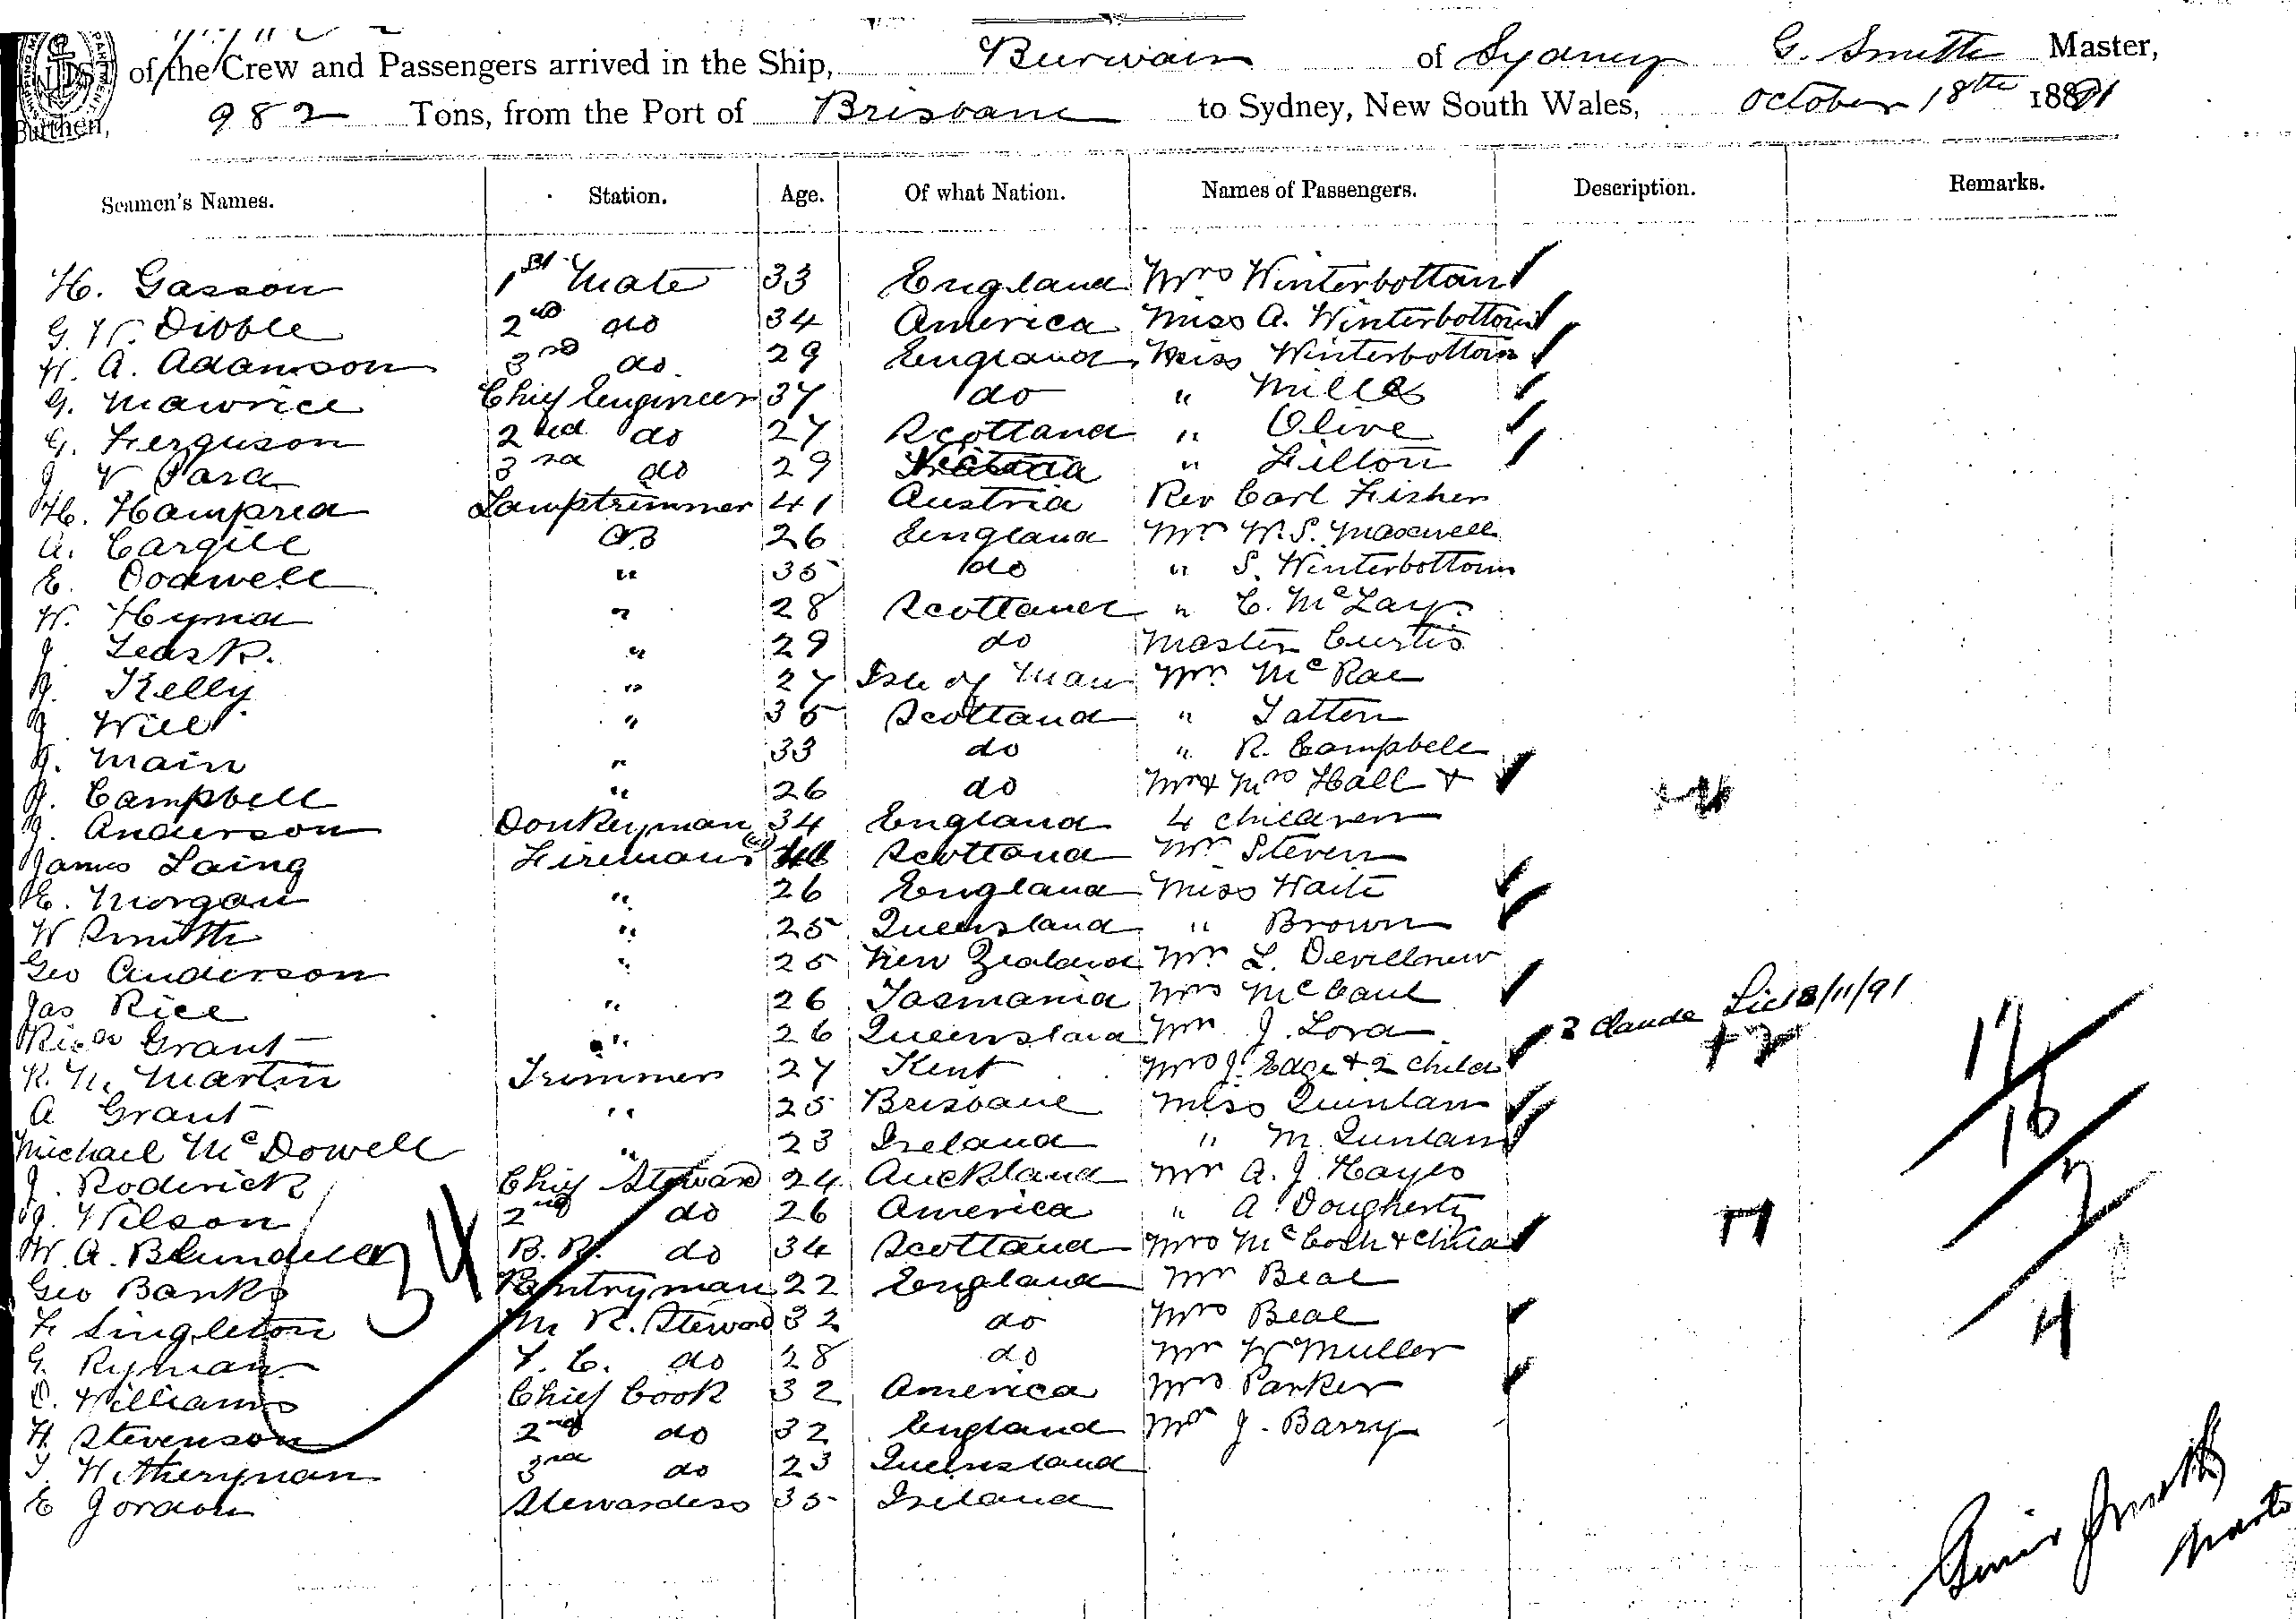 of the Crew and Passengers arrived in the Ship, Burwah of Sydney G. Smith Master,
Burthen, 982 Tons, from the Port of Brisbane to Sydney, New South Wales, October 18th 1891
Seamen's Names. Station. Age. Of what Nation. Names of Passengers. Description. Remarks.
H. Gasson 1st Mate 33 England Mrs Winterbottom
G. W. Dibble 2nd do 34 America Miss A. Winterbottom
W. A. Adamson 3rd do 29 England Miss Winterbottom
G. Mawrice Chief Engineer 37 do " Mills
G. Ferguson 2nd do 27 Scotland " Olive
J V Para 3rd do 29 " Fillon
H. Hamprea Lamptrimmer 41 Austria Rev Carl Fisher
A. Cargill AB 26 England Mr W. S. Maxwell
E. Dodwell " 35 do " S. Winterbottom
W. Hyma " 28 Scotland " C. McLay
J. Leask. " 29 do Master Curtis
J. Kelly " 27 Isle of Man Mr McRae
J. Will " 35 Scotland " Tatten
J. Main " 33 do " R. Campbell
J. Campbell " 26 do Mr & Mrs Hall +
J. Anderson Donkeyman 34 England 4 children
James Laing Fireman Scotland Mr Steven
E. Morgan " 26 England Miss Waite
W Smith " 25 Queensland " Brown
Geo Anderson " 25 New Zealand Mr L.
Jas Rice " 26 Tasmania Mrs McCaul
Richd Grant " 26 Queensland Mr J. Lord 2 Claude 8/11/91
R. N. Martin Trimmer 27 Kent Mrs J. Edge + 2 child + 2 17
A Grant " 25 Brisbane Miss Quinlan 16
Michael McDowell " 23 Ireland " M. Qunlan
J. Roderick Chief Steward 24 Auckland Mr A. J. Hayes 2
J. Wilson 34 2nd do 26 America " A Dougherty
W. A. Blundell B. R. do 34 Scotland Mrs McCosh + child +1
Geo Banks Pantryman 22 England Mr Beal
F Singleton M R. Steward 32 do Mrs Beal 4
G. Ryman F. C. do 28 do Mr W Muller
C. Williams Chief Cook 32 America Mrs Parker
H. Stevenson 2nd do 32 England Mr J. Barry
T. Witheryman 3rd do 23 Queensland
E Jordon Stewardess 35 Ireland
Smith